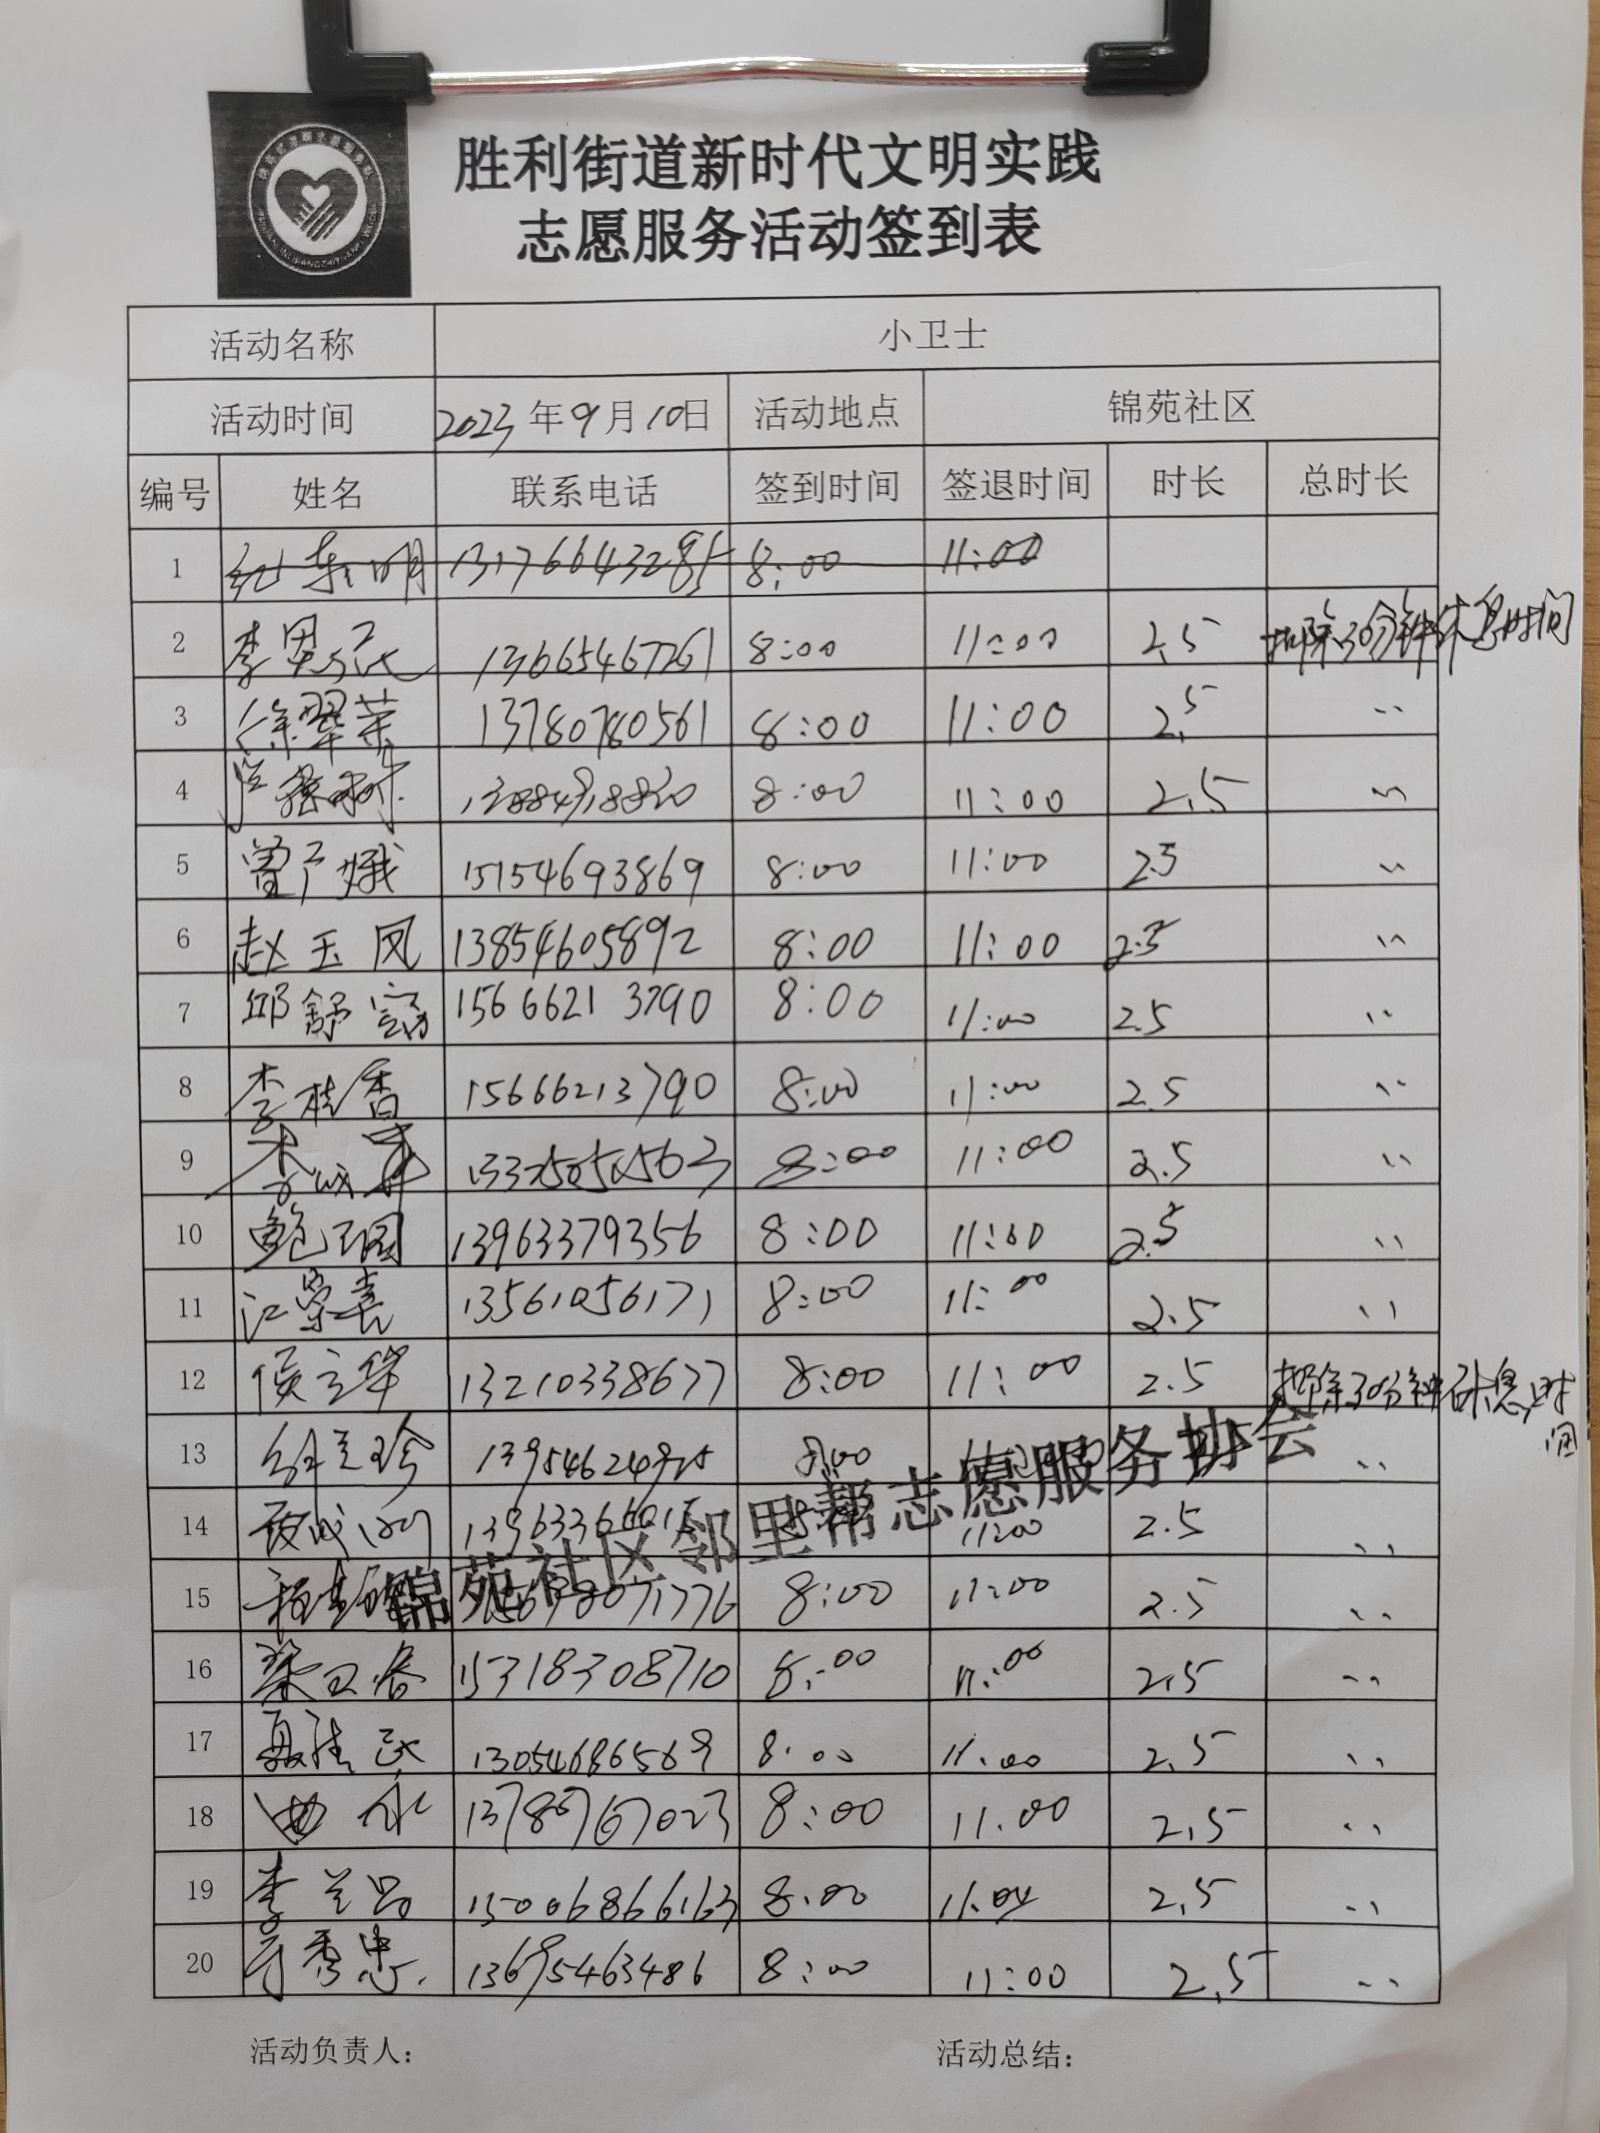 胜利街道新时代文明实践
志愿服务活动签到表
活动名称 小卫士
活动时间 2023年9月10日 活动地点 锦苑社区
编号 姓名 联系电话 签到时间 签退时间 时长 总时长
1 纪东明 13176643285 8:00 11:00
2 李思民 13665467261 8:00 11:00 2.5 扣除30分钟休息时间
3 徐翠荣 13780780561 8:00 11:00 2.5 〃
4 8:00 11:00 2.5 〃
5 曾广娥 15154693869 8:00 11:00 2.5 〃
6 赵玉凤 13854605892 8:00 11:00 2.5 〃
7 邱舒窈 15666213790 8:00 11:00 2.5 〃
8 李桂香 15666213790 8:00 11:00 2.5 〃
9 8:00 11:00 2.5 〃
10 鲍 13963379356 8:00 11:00 2.5 〃
11 江荣喜 13561056171 8:00 11:00 2.5 〃
12 侯立华 13210338677 8:00 11:00 2.5 扣除30分钟休息时间
13 8:00 〃
14 11:00 2.5 〃
15 8:00 11:00 2.5 〃
16 15318308710 8:00 11:00 2.5 〃
17 13054686569 8:00 11:00 2.5 〃
18 曲永 13780767023 8:00 11:00 2.5 〃
19 李兰 15006866163 8:00 2.5 〃
20 秀忠 13695463486 8:00 11:00 2.5 〃
锦苑社区邻里帮志愿服务协会
活动负责人： 活动总结：